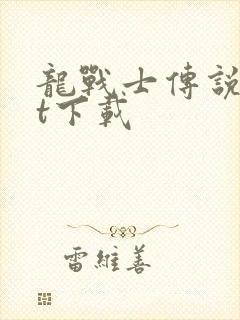 龍戰士傳説
t下載
雷維善